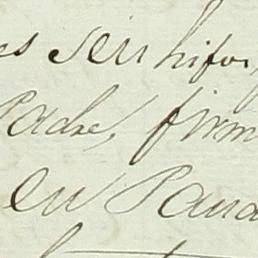 es sin hijos,
Padre, firm
en Para